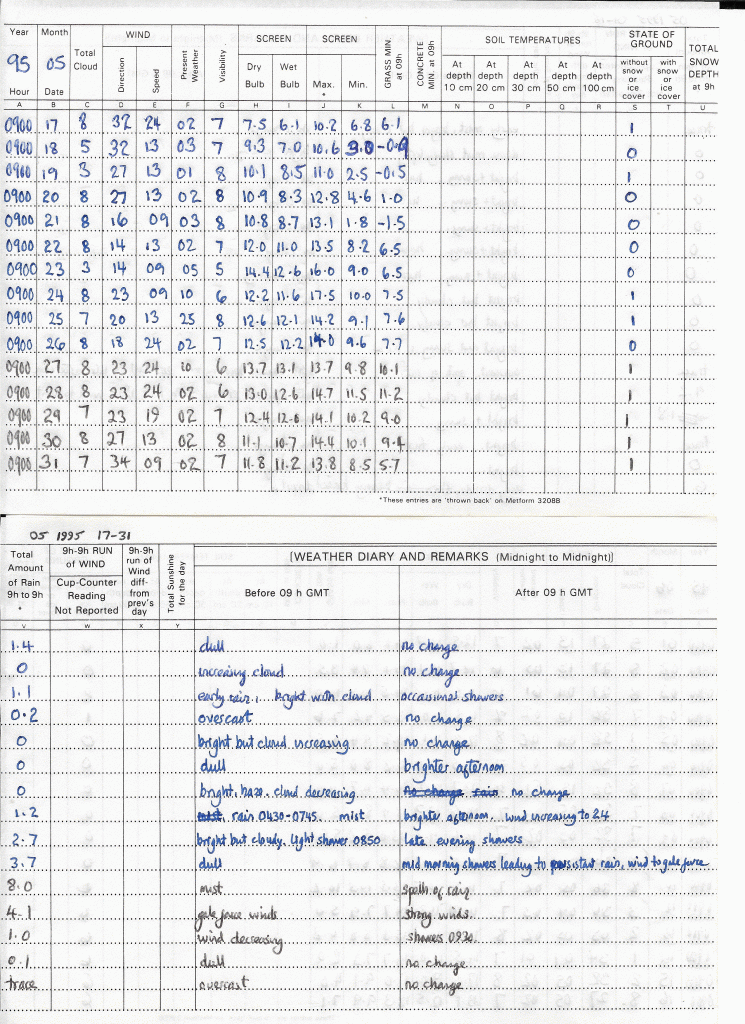 Year Month Total Cloud WIND Present Weather Visibility SCREEN SCREEN GRASS MIN. at 09h CONCRETE MIN. at 09h SOIL TEMPERATURES STATE OF GROUND TOTAL SNOW DEPTH at 9h
95 05 Direction Speed Dry Bulb Wet Bulb Max. * Min. At depth 10 cm At depth 20 cm At depth 30 cm At depth 50 cm At depth 100 cm without snow or ice cover with snow or ice cover
Hour Date
A B C D E F G H I J K L M N O P Q R S T U
0900 17 8 32 24 02 7 7.5 6.1 10.2 6.8 6.1 1
0900 18 5 32 13 03 7 9.3 7.0 10.6 3.0 -0.9 0
0900 19 3 27 13 01 8 10.1 8.5 11.0 2.5 -0.5 1
0900 20 8 27 13 02 8 10.9 8.3 12.8 4.6 1.0 0
0900 21 8 16 09 03 8 10.8 8.7 13.1 1.8 -1.5 0
0900 22 8 14 13 02 7 12.0 11.0 13.5 8.2 6.5 0
0900 23 3 14 09 05 5 14.4 12.6 16.0 9.0 6.5 0
0900 24 8 23 09 10 6 12.2 11.6 17.5 10.0 7.5 1
0900 25 7 20 13 25 8 12.6 12.1 14.2 9.1 7.6 1
0900 26 8 18 24 02 7 12.5 12.2 14.0 9.6 7.7 0
0900 27 8 23 24 10 6 13.7 13.1 13.7 9.8 10.1 1
0900 28 8 23 24 02 6 13.0 12.6 14.7 11.5 11.2 1
0900 29 7 23 19 02 7 12.4 12.0 14.1 10.2 9.0 1
0900 30 8 27 13 02 8 11.1 10.7 14.4 10.1 9.4 1
0900 31 7 34 09 02 7 11.8 11.2 13.8 8.5 5.7 1
*These entries are 'thrown back' on Metform 3208B
05 1995 17-31
Total Amount of Rain 9h to 9h * 9h-9h RUN of WIND Cup-Counter Reading Not Reported 9h-9h run of Wind diff- from prev's day Total Sunshine for the day (WEATHER DIARY AND REMARKS (Midnight to Midnight))
Before 09 h GMT After 09 h GMT
V W X Y
1.4 dull no change
0 increasing cloud no change
1.1 early rain. bright with cloud occassional showers
0.2 overcast no change
0 bright but cloud increasing no change
0 dull brighter afternoon
0 bright, haze. cloud decreasing no change rain no change
1.2 mist, rain 0430-0745. mist brighter afternoon. wind increasing to 24
2.7 bright but cloudy. light shower 0850 late evening showers
3.7 dull mid morning showers leading to persistant rain, wind to gale force
8.0 mist spells of rain
4.1 gale force winds strong winds.
1.0 wind decreasing showers 0930.
0.1 dull no change
trace overcast no change